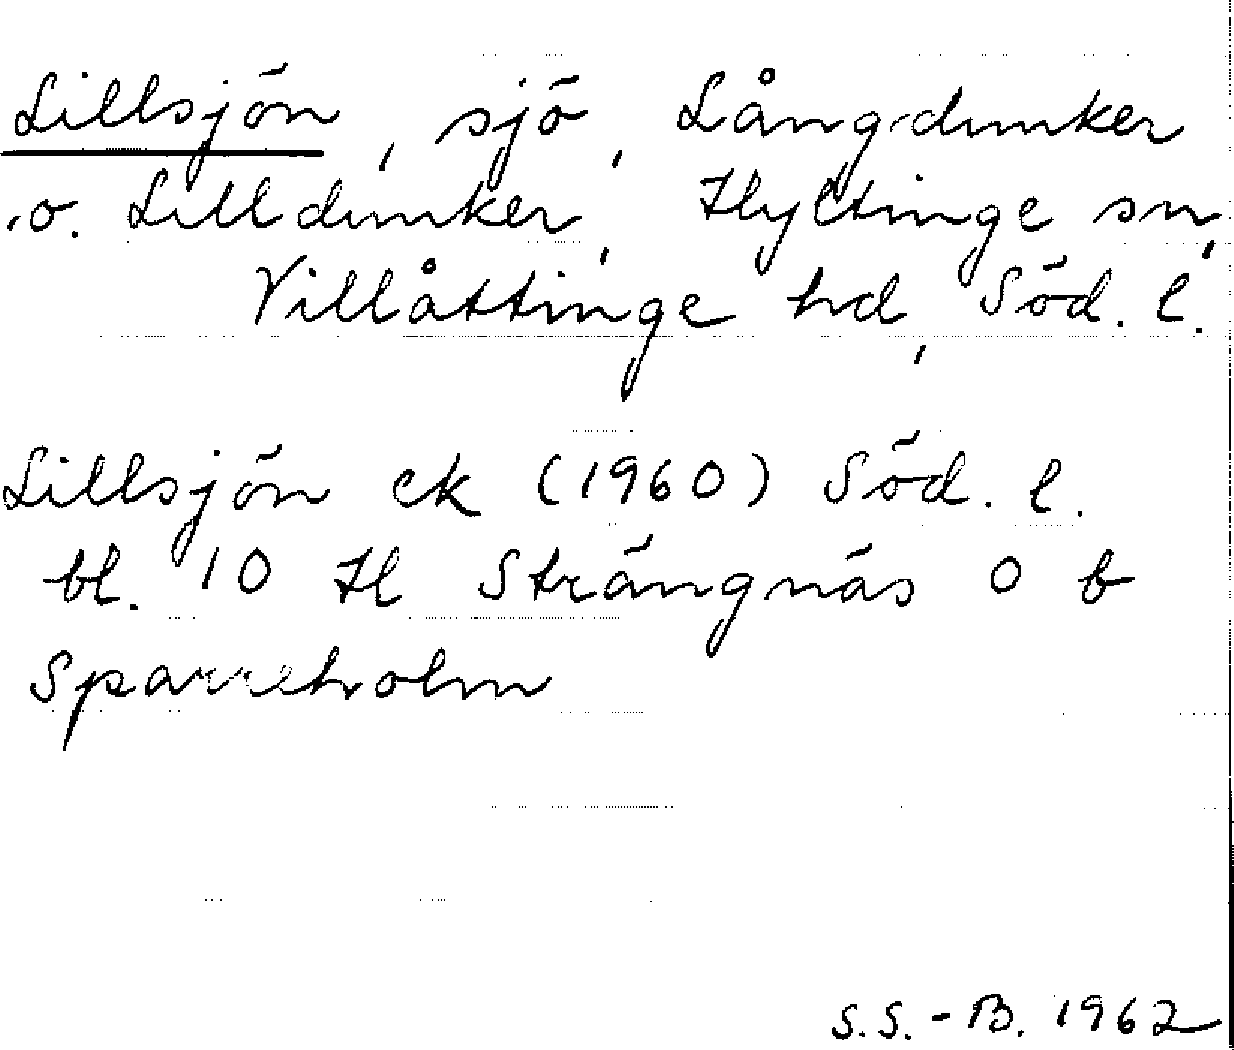 Lillsjön, sjö, Långdunker
o. Lilldunker, Hyltinge sn,
Villåttinge hd, Söd. l.
Lillsjön ek (1960) Söd. l.
bl. 10 H Strängnäs 0 b
Sparreholm
S.S.-B. 1962